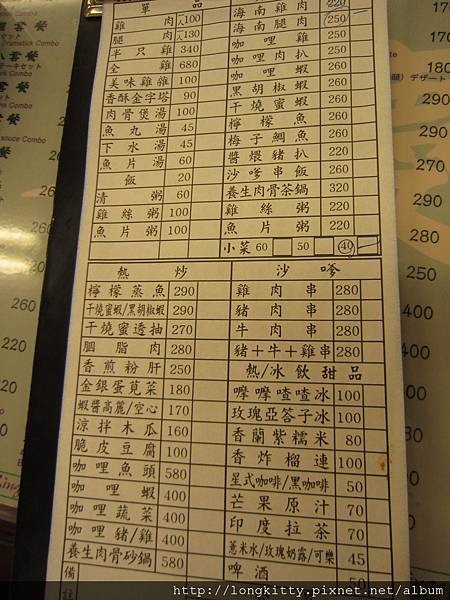 單品
雞肉 人100
腿肉 人130
半只雞 340
全雞 680
美味雞雜 100
香酥金字塔 90
肉骨煲湯 100
魚丸湯 45
下水湯 45
魚片湯 60
飯 20
清粥 60
雞絲粥 100
魚片粥 100
海南雞肉 220
海南腿肉 250
咖哩雞 250
咖哩肉扒 260
咖哩蝦 260
黑胡椒蝦 260
干燒蜜蝦 260
檸檬魚 260
梅子鯛魚 260
醬煨豬扒 260
沙嗲串飯 260
養生肉骨茶鍋 320
雞絲粥 220
魚片粥 220
小菜 60 50 40
熱炒
檸檬蒸魚 290
干燒蜜蝦/黑胡椒蝦 290
干燒蜜透抽 270
胭脂肉 280
香煎粉肝 250
金銀蛋莧菜 180
蝦醬高麗/空心 170
涼拌木瓜 160
脆皮豆腐 100
咖哩魚頭 580
咖哩蝦 400
咖哩蔬菜 400
咖哩豬/雞 400
養生肉骨砂鍋 580
備
註
沙嗲
雞肉串 280
豬肉串 280
牛肉串 280
豬+牛+雞串 280
熱/冰飲甜品
嚤嚤喳喳冰 100
玫瑰亞答子冰 100
香蘭紫糯米 80
香炸榴連 100
星式咖啡/黑咖啡 50
芒果原汁 70
印度拉茶 70
薏米水/玫瑰奶露/可樂 45
啤酒
套餐
Drumstick Combo
套餐
Combo
套餐
sauce Combo
220
220
250
250
320
320
デザート
290
290
270
280
250
180
400
400
http://longkitty.pixnet.net/album